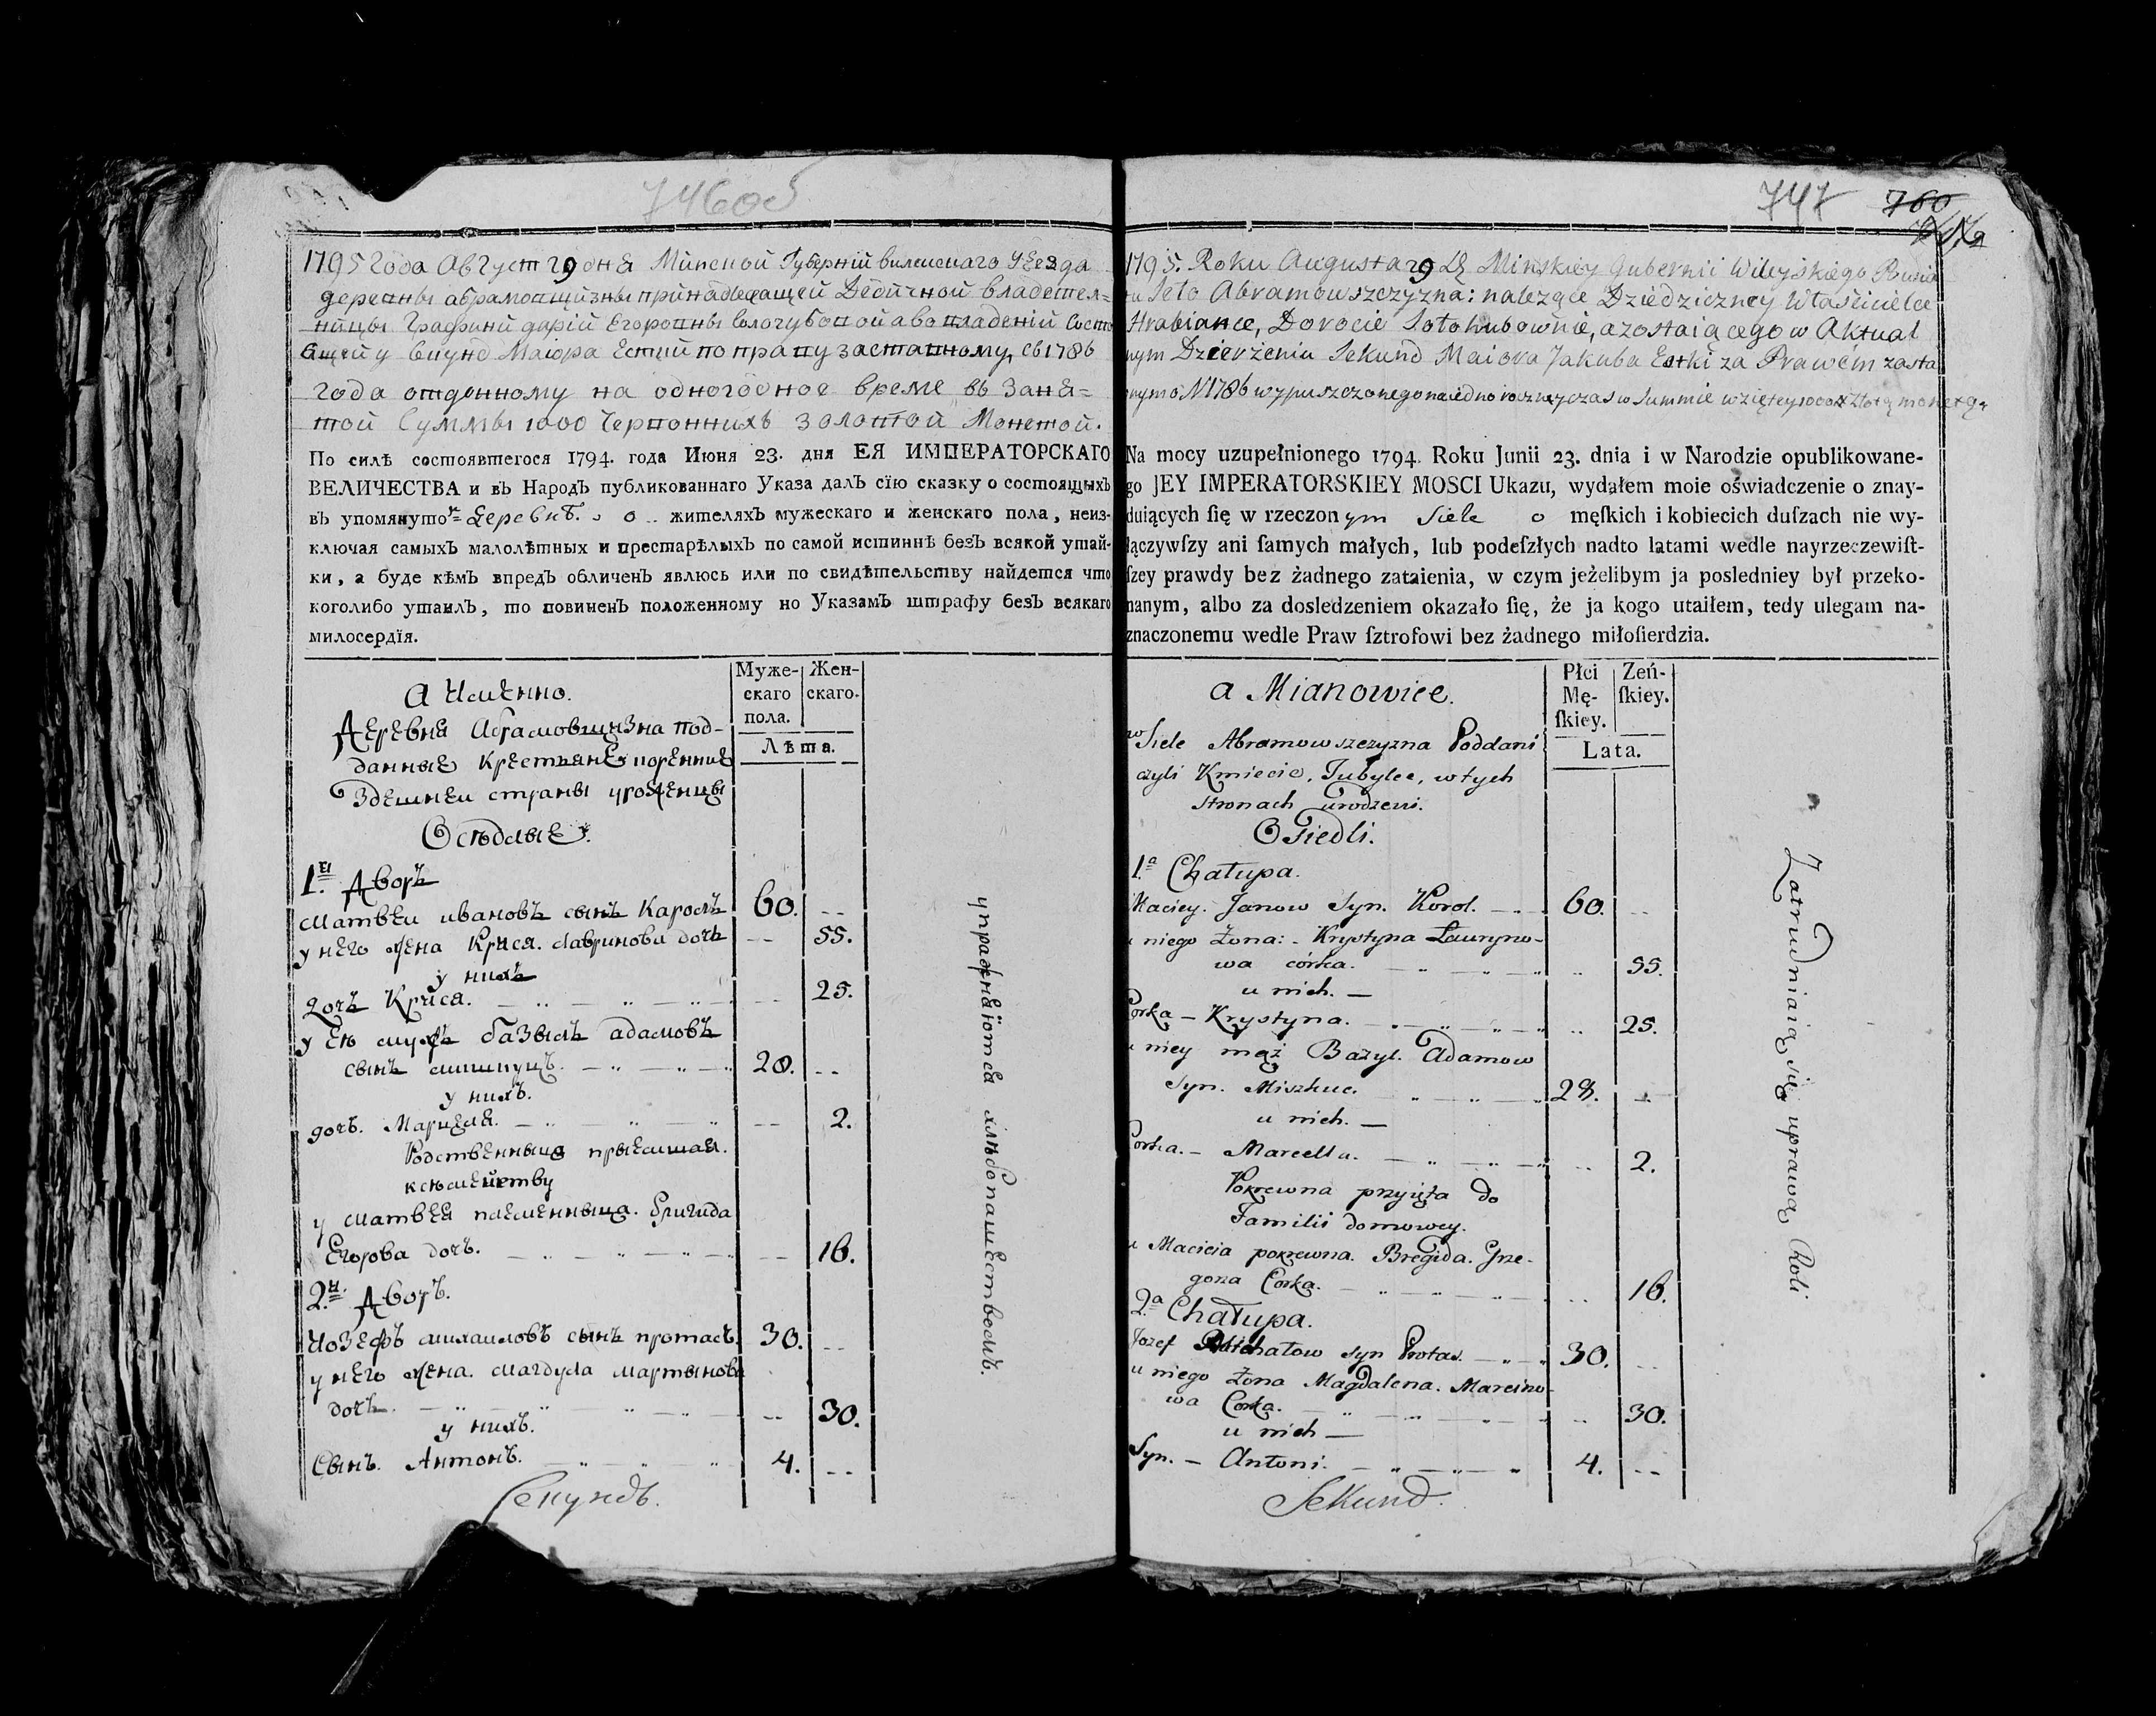 746об
1795 года Август 29 дня Минской Губерніи вилейскаго Уезда
деревны абрамовщизны принадлежащей Дедичной владетел=
ницы Графини дарій Егоровны Сологубовой а во владеніи Состо
ящей у Секунд Маіора Естки по праву заставному, съ 1786
года отданному на одногодное время въ Заня=
той Суммы 1000 Червонныхъ золотой Монетой.
По силѣ состоявшегося 1794. года Июня 23. дня ЕЯ ИМПЕРАТОРСКАГО
ВЕЛИЧЕСТВА и въ НародЪ публикованнаго Указа далЪ сїю сказку о состоящыхЪ
въ упомянутой деревнѣ. о .. жителяхЪ мужескаго и женскаго пола, неиз-
ключая самыхЪ малолѣтных и престарѣлыхЪ по самой истиннѣ безЪ всякой утай-
ки, а буде кѣмЪ впредЪ обличенЪ явлюсь или по свидѣтельству найдется что
коголибо утаилЪ, то повиненЪ положенному по УказамЪ штрафу безЪ всякаго
милосердїя.
Муже-
скаго
пола.
Жен-
скаго.
Лѣта.
А Именно.
Деревня Абрамовщизна под-
данные крестьяне коренние
Здешней страны уроженцы
Осѣдлые.
1.й Дворъ
Матвей ивановъ сынъ Кароль 60. --
у него жена Крися. лавринова дочь -- 55.
у нихъ
дочь Крися. -- 25.
у ею мужъ базыль адамовъ
сынъ мишкуцъ. 28. --
у нихъ.
дочь. Марцеля. -- 2.
Родственныца прыемшая.
к сѣмейству
у Матвея племенныца. Бригида
Егорова дочь. -- 16.
2.й Дворъ.
Иозефъ михаиловъ сынъ протасъ. 30. --
у него жена. магдула мартынова
дочь. -- 30.
у нихъ.
Сынъ. Антонъ. 4. --
Секундъ.
упражняются хлѣбопашествомъ.
747 760
1795. Roku Augusta 29 D. Minskiey Gubernii Wileyskiego Powia
tu Seło Abramowszczyzna: należące Dziedziczney Właścicielce
Hrabiance, Dorocie Sołohubownie, a zostaiącego w Aktual
nym Dzierżeniu Sekund Maiora Jakuba Estki za Prawem zasta
wnym o N 1786 wypuszczonego na iedno roczny czas w Summie wziętey 1000 # Złotą monetą
Na mocy uzupełnionego 1794. Roku Junii 23. dnia i w Narodzie opublikowane-
go JEY IMPERATORSKIEY MOSCI Ukazu, wydałem moie oświadczenie o znay-
duiących ſię w rzeczonym Siele o męſkich i kobiecich duſzach nie wy-
łączywſzy ani ſamych małych, lub podeſzłych nadto latami wedle nayrzeczewiſt-
ſzey prawdy bez żadnego zataienia, w czym jeżelibym ja posledniey był przeko-
nanym, albo za dosledzeniem okazało ſię, że ja kogo utaiłem, tedy ulegam na-
znaczonemu wedle Praw ſztrofowi bez żadnego miłoſierdzia.
Płci
Mę-
ſkiey.
Zeń-
ſkiey.
Lata.
a Mianowice.
w Siele Abramowszczyzna Poddani
czyli Kmiecie, Tubylce, w tych
stronach urodzeni.
Osiedli.
1.a Chałupa.
Maciey. Janow Syn. Korol. 60. --
u niego Żona: - Krystyna Lauryno-
wa córka. .. 55.
u nich. —
Corka — Krystyna. .. 25.
u niey mąż Bazyl. Adamow
Syn. Miszkuc. 28. --
u nich. —
Corka. — Marcella. .. 2.
Pokrewna przyięta do
Familii domowey.
u Macieia pokrewna. Bregida. Grze-
gorza Corka. .. 16.
2.a Chałupa.
Jozef Michałow syn Protas. 30. --
u niego Żona Magdalena. Marcino-
wa Corka. .. 30.
u nich —
Syn. — Antoni. 4. --
Sekund.
Zatrudniaią się uprawą Roli.